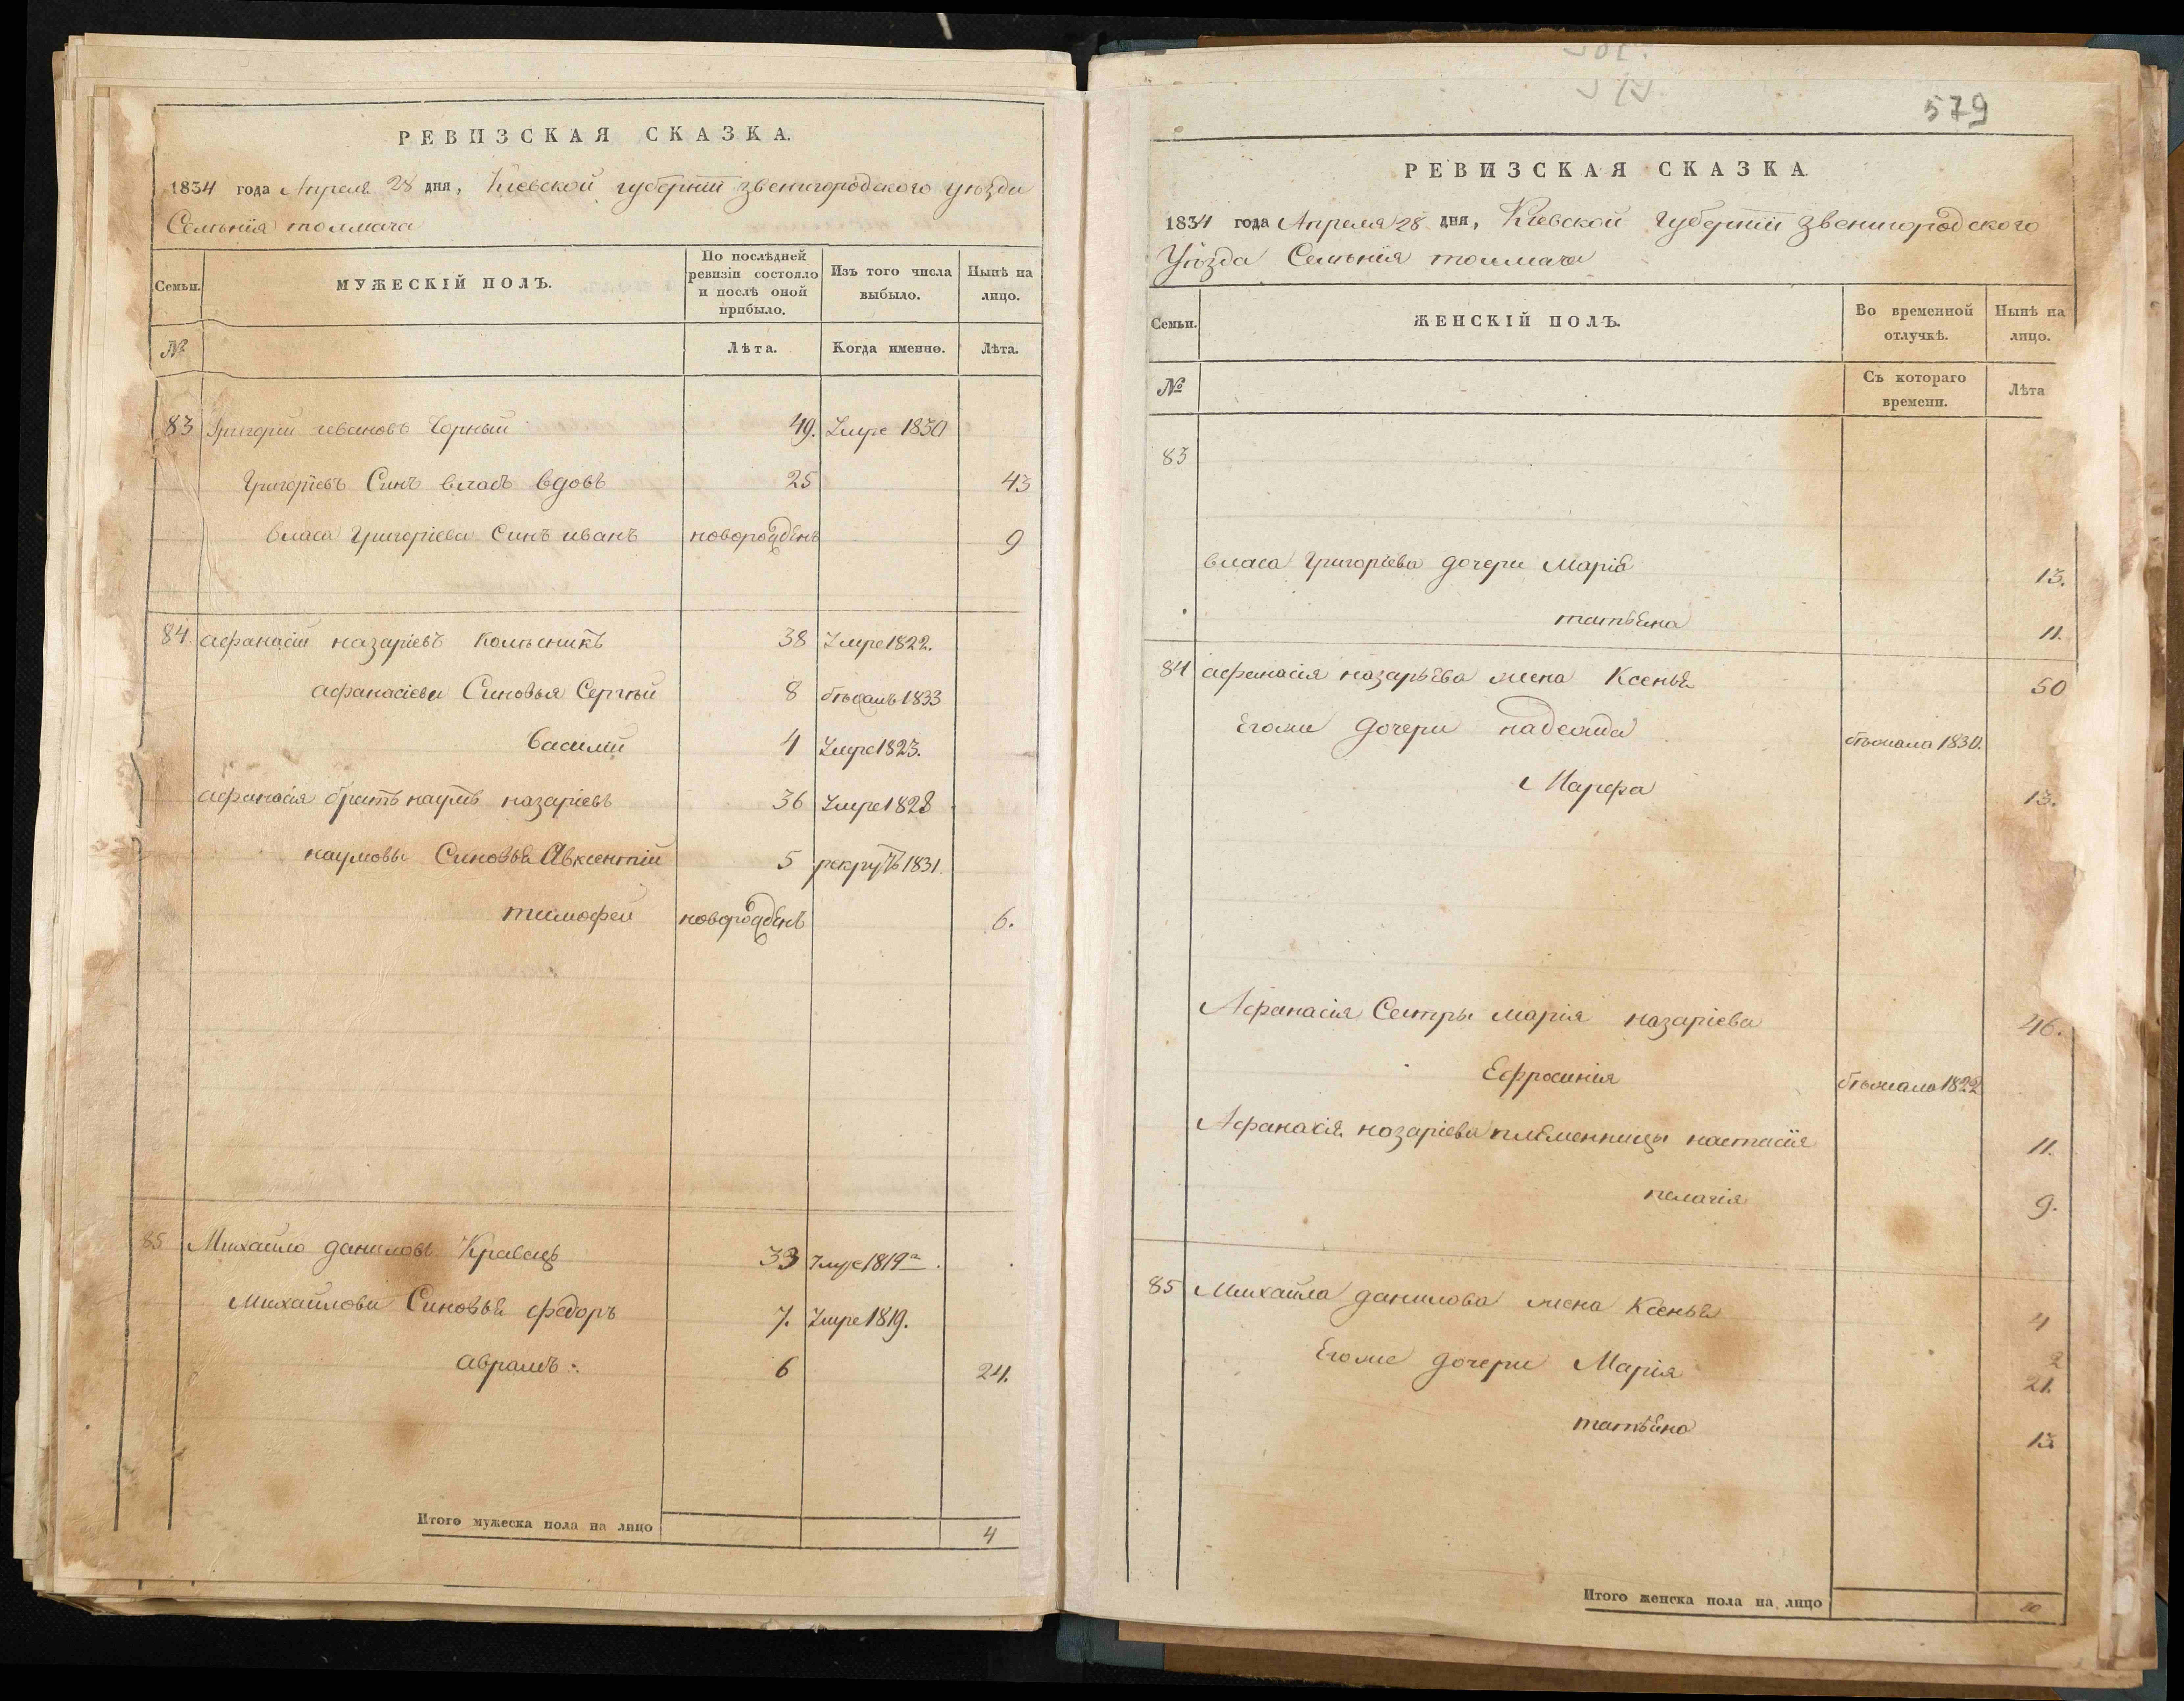 РЕВИЗСКАЯ СКАЗКА.
1834 года Апреля 28 дня, Киевской губернии звенигородского уѣзда
Селѣнія толмача
Семьи. МУЖЕСКІЙ ПОЛЪ. По послѣдней ревизіи состояло и послѣ оной прибыло. Изъ того числа выбыло. Нынѣ на лицо.
№ Лѣта. Когда именно. Лѣта.
83 Григорий ивановъ Чорный 49. Умре 1830
Григоріевъ Синъ власъ вдовъ 25 43
власа Григоріева Синъ иванъ новорожденъ 9
84 афанасій назаріевъ колѣсникъ 38 Умре 1822.
афанасіеви Синовья Сергѣй 8 бѣжалъ 1833
Василій 4 Умре 1823.
афанасія братъ наумъ назаріевъ 36 Умре 1828
наумовы Синовья Авксентій 5 рекрутъ 1831.
тимофей новорожденъ 6.
85 Михайло даниловъ Кравецъ 33 Умре 1819
Михайлови Синовья федоръ 7. Умре 1819.
аврамъ 6 24.
Итого мужеска пола на лицо 4
579
РЕВИЗСКАЯ СКАЗКА
1834 года Апреля 28 дня, Киевской Губерніи Звенигородского
Уѣзда Селѣнія толмача
Семьи. ЖЕНСКІЙ ПОЛЪ. Во временной отлучкѣ. Нынѣ на лицо.
№ Съ котораго времени. Лѣта
83
власа Григоріева дочери Марія 13.
татьяна 11.
84 афанасія назарьева жена Ксенья 50
Егоже дочери надежда бѣжала 1830.
Марфа 13.
Афанасія Сестры марія назаріева 46.
Ефросинія бѣжала 1822
Афанасія назаріева племенницы настасія 11.
пелагія 9.
85 Михайла данилова жена Ксенья 4
2
Егоже дочери Марія 21.
татьяна 13
Итого женска пола на лицо 10